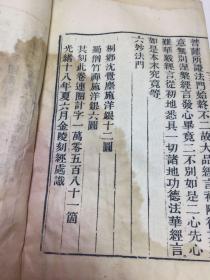 菩薩所說法門始終不二故大品經言
意無別涅槃經言發心畢竟二不別如是二心先心
難華嚴經言從初地悉具一切諸地功德法華經言
如是本末究竟等
六妙法門
桐鄉沈覺塵施洋銀十二圓
蜀僧竹禪施洋銀六圓
其刻此卷連圈計字一萬零五百八十一箇
光緒十八年夏六月金陵刻經處識